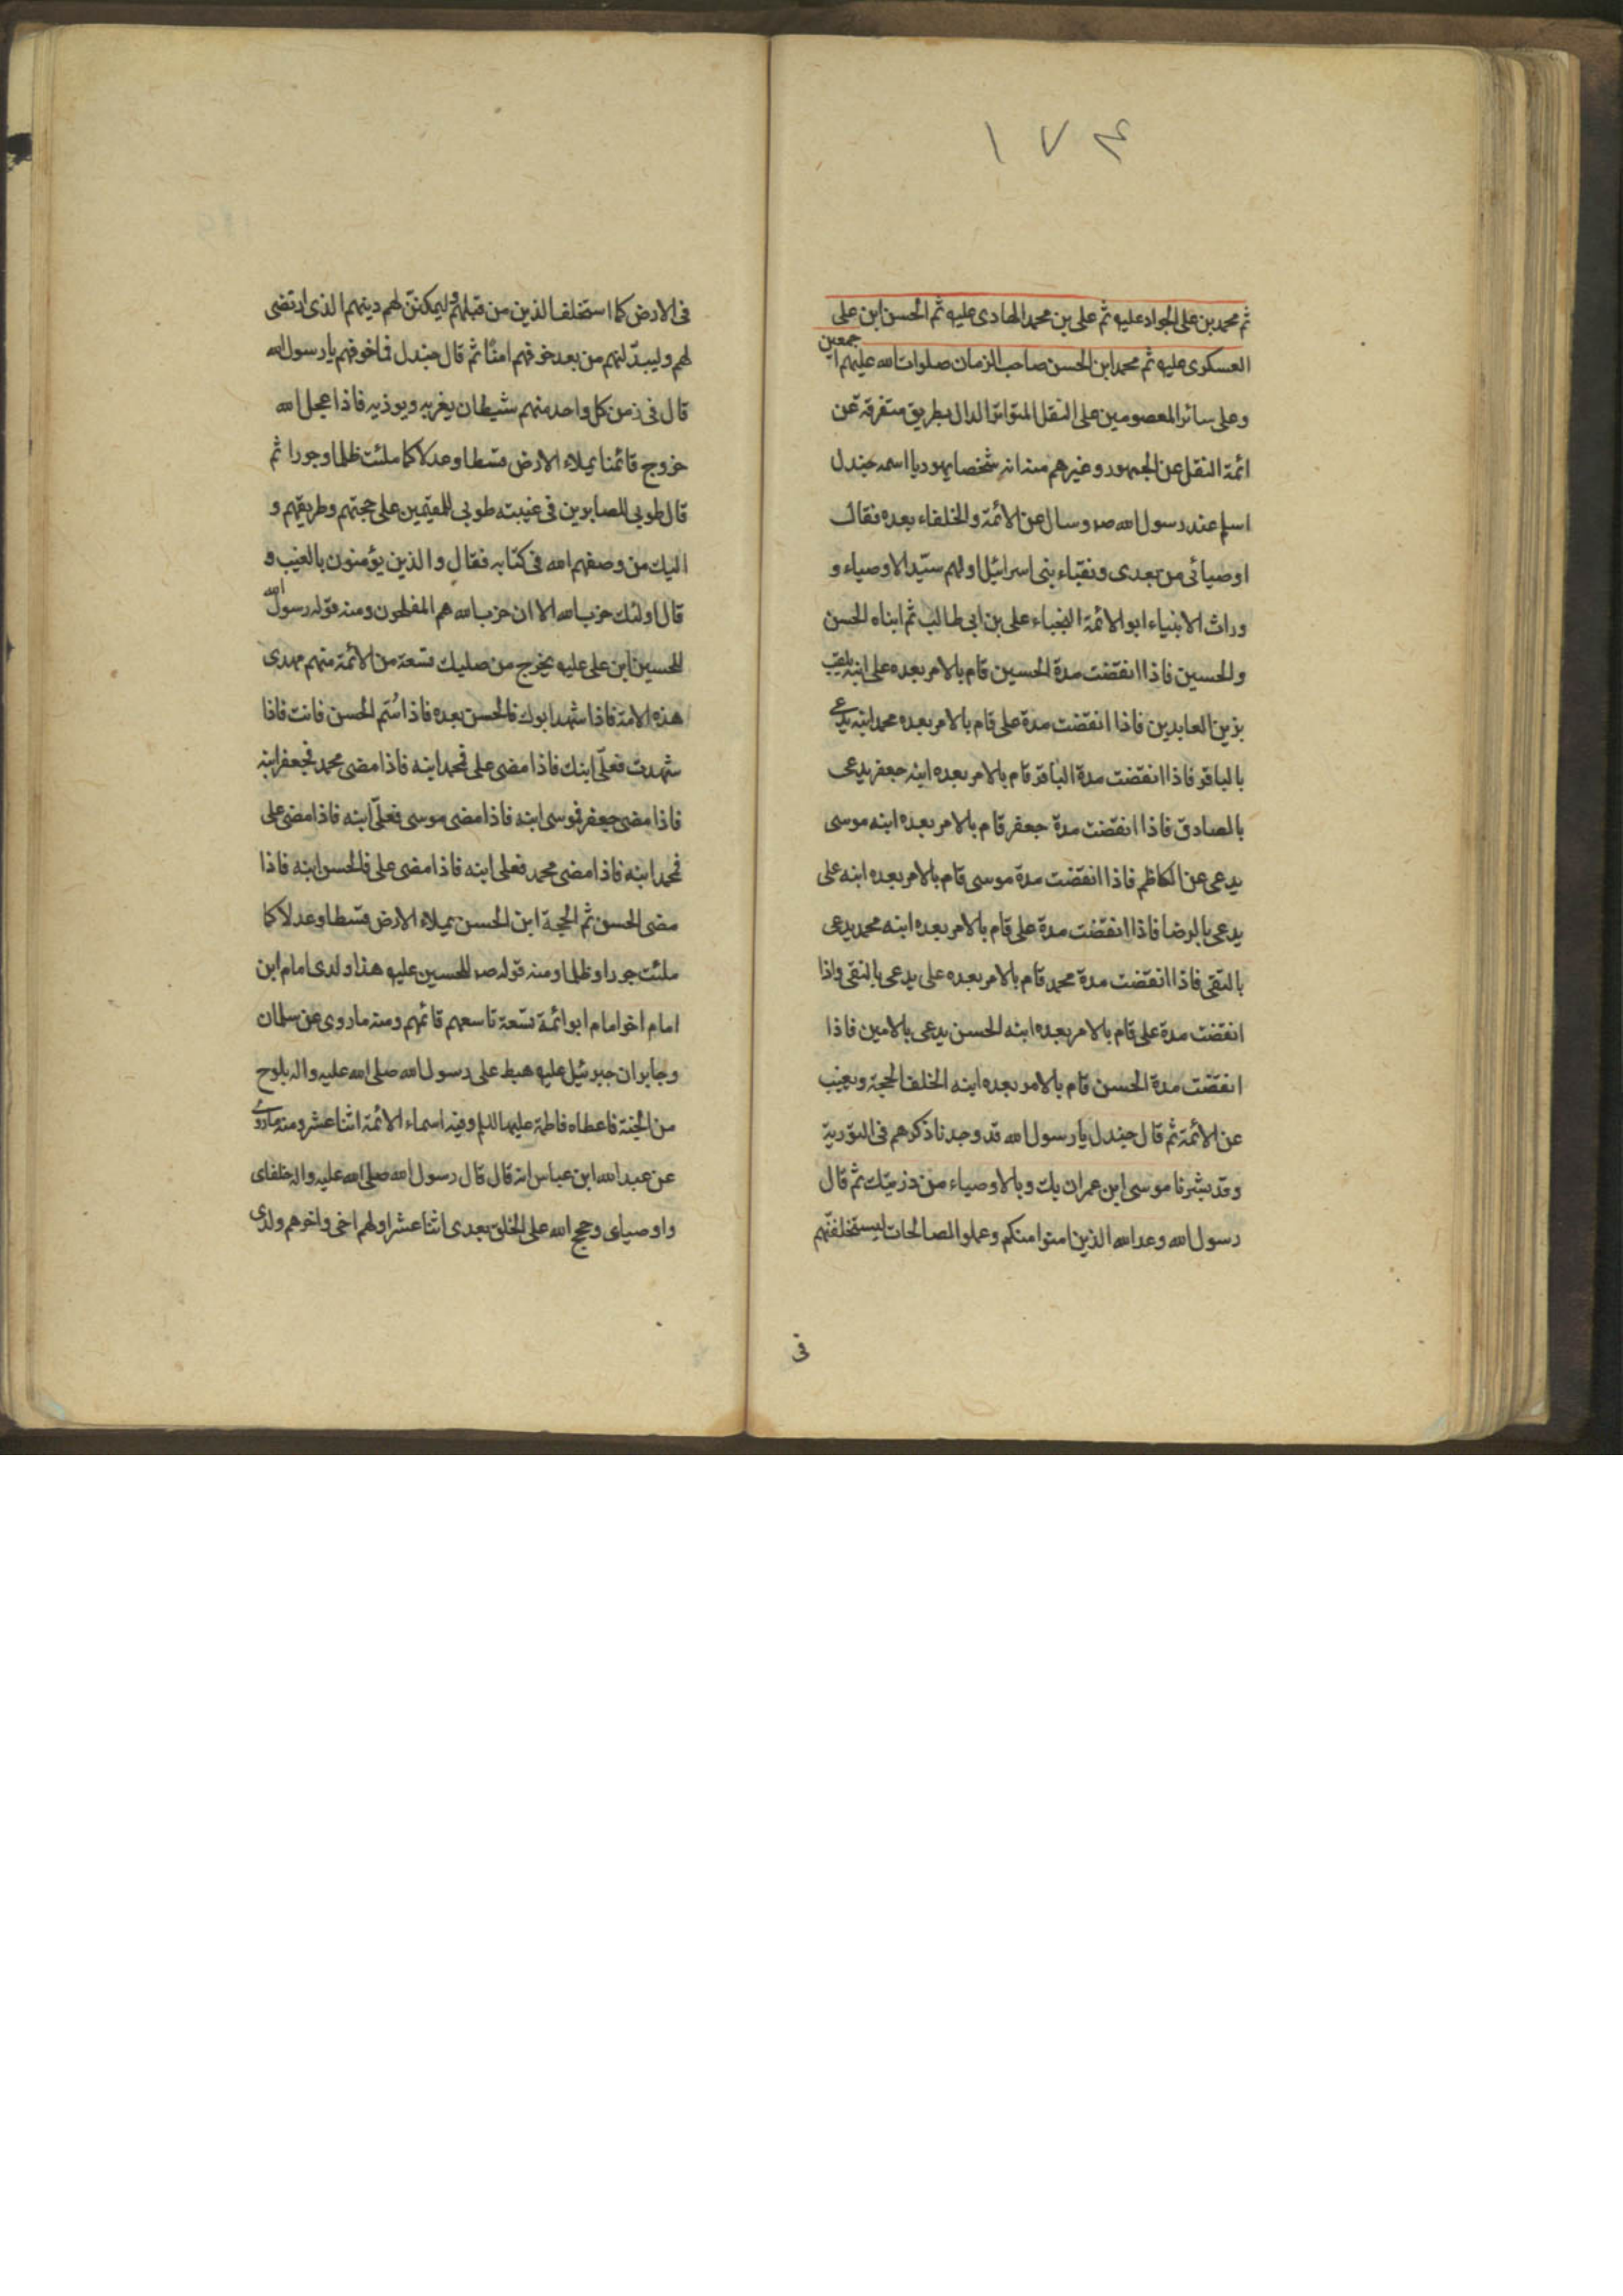 ١٧٤
ثم محمد بن على الجواد عليه ثم على بن محمد الهادى عليه ثم الحسن ابن على
العسكرى عليه ثم محمد ابن الحسن صاحب الزمان صلوات الله عليهم اجمعين
وعلى سائر المعصومين على النقل المتواتر الدال بطريق متفرقة عن
ائمة النقل عن الجمهور وغيرهم منه انه شخصا يهوديا اسمه جندل
اسلم عند رسول الله صم وسال عن الائمة والخلفاء بعده فقال
اوصيائى من بعدى ونقباء بنى اسرائيل اولهم سيّد الاوصياء و
وراث الانبياء ابو الائمة النجباء على بن ابى طالب ثم ابناه الحسن
والحسين فاذا انقضت مدة الحسين قام بالامر بعده على ابنه يلقب
بزين العابدين فاذا انقضت مدة على قام بالامر بعده محمد ابنه يدعى
بالباقر فاذا انقضت مدة الباقر قام بالامر بعده ابنه جعفر يدعى
بالصادق فاذا انقضت مدة جعفر قام بالامر بعده ابنه موسى
يدعى عن الكاظم فاذا انقضت مدة موسى قام بالامر بعده ابنه على
يدعى بالرضا فاذا انقضت مدة على قام بالامر بعده ابنه محمد يدعى
بالتقى فاذا انقضت مدة محمد قام بالامر بعده على يدعى بالنقى واذا
انقضت مدة على قام بالامر بعده ابنه الحسن يدعى بالامين فاذا
انقضت مدة الحسن قام بالامر بعده ابنه الخلف الحجة ويغيب
عن الائمة ثم قال جندل يا رسول الله قد وجدنا ذكرهم فى التورية
وقد بشرنا موسى ابن عمران بك وبالاوصياء من ذريّتك ثم قال
رسول الله وعد الله الذين امنوا منكم وعملوا الصالحات ليستخلفنّهم
فى
فى الارض كما استخلف الذين من قبلهم وليمكننّ لهم دينهم الذى ارتضى
لهم وليبدّلنهم من بعد خوفهم امنًا ثم قال جندل فما خوفهم يا رسول الله
قال فى زمن كل واحد منهم شيطان يغريه ويوذيه فاذا عجل الله
خروج قائمنا يملاء الارض قسطا وعدلا كما ملئت ظلما وجورا ثم
قال طوبى للصابرين فى غيبته طوبى للمقيمين على حجتهم وطريقهم و
اليك من وصفهم الله فى كتابه فقال والذين يؤمنون بالغيب و
قال اولئك حزب الله الا ان حزب الله هم المفلحون ومنه قوله رسول الله
للحسين ابن على عليه يخرج من صلبك تسعة من الائمة منهم مهدى
هذه الامة فاذا شهد ابوك فالحسن بعده فاذا سُتم الحسن فانت فاذا
شهدت فعلّى ابنك فاذا مضى على فمحمد ابنه فاذا مضى محمد فجعفر ابنه
فاذا مضى جعفر فموسى ابنه فاذا مضى موسى فعلّى ابنه فاذا مضى على
فمحمد ابنه فاذا مضى محمد فعلى ابنه فاذا مضى على فالحسن ابنه فاذا
مضى الحسن ثم الحجة ابن الحسن يملاء الارض قسطا وعدلا كما
ملئت جورا وظلما ومنه قوله صم للحسين عليه هذا ولدى امام ابن
امام اخو امام ابو ائمة تسعة تاسعهم قائمهم ومنه ما روى عن سلمان
وجابر ان جبرئيل عليه هبط على رسول الله صلى الله عليه واله بلوح
من الجنة فاعطاه فاطمة عليها السلم وفيه اسماء الائمة اثنا عشر ومنه ما روى
عن عبد الله ابن عباس انه قال قال رسول الله صلى الله عليه واله خلفاى
واوصياى وحجج الله على الخلق بعدى اثنا عشر اولهم اخى واخرهم ولدى